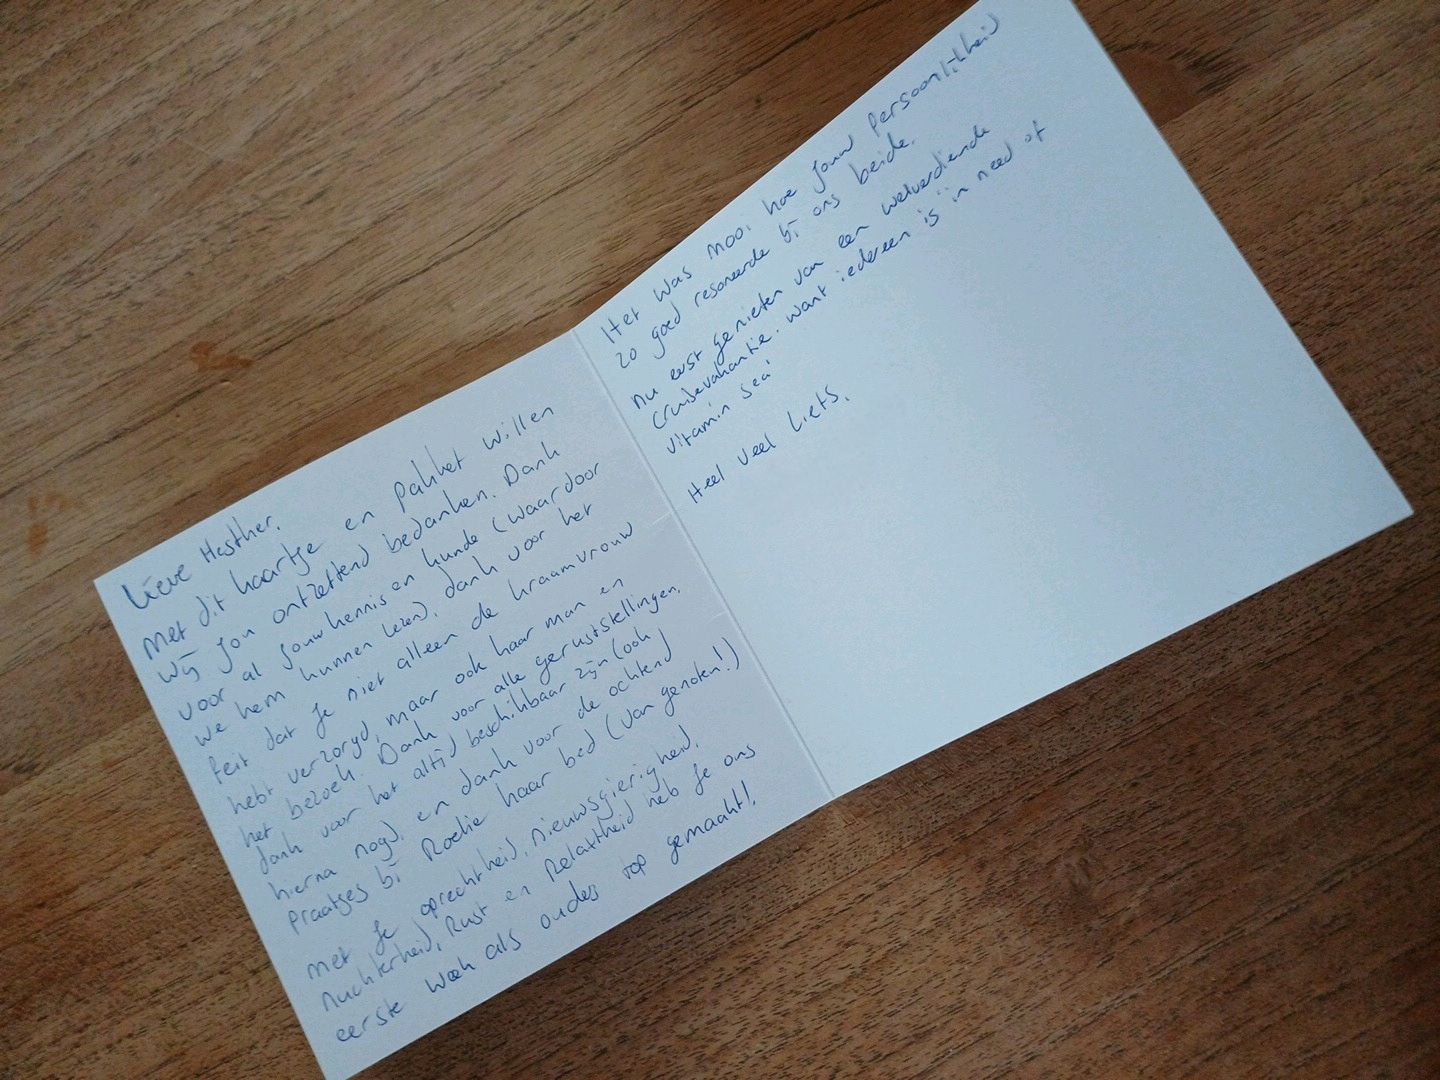 Lieve Hesther,
Met dit kaartje en pakket willen
wij jou ontzettend bedanken. Dank
voor al jouw kennis en kunde (waardoor
we hem kunnen lezen), dank voor het
feit dat je niet alleen de kraamvrouw
hebt verzorgd, maar ook haar man en
het bezoek. Dank voor alle geruststellingen,
dank voor het altijd beschikbaar zijn (ook
hierna nog), en dank voor de ochtend
praatjes bij Roelie haar bed (van genoten!)
Met je oprechtheid, nieuwsgierigheid,
nuchterheid, Rust en Relaxtheid heb je ons
eerste week als ouders top gemaakt!.
Het was mooi hoe jouw persoonlijkheid
zo goed resoneerde bij ons beide.
Nu eerst genieten van een welverdiende
cruisevakantie. want iedereen is "in need of
vitamin sea"
Heel veel liefs,